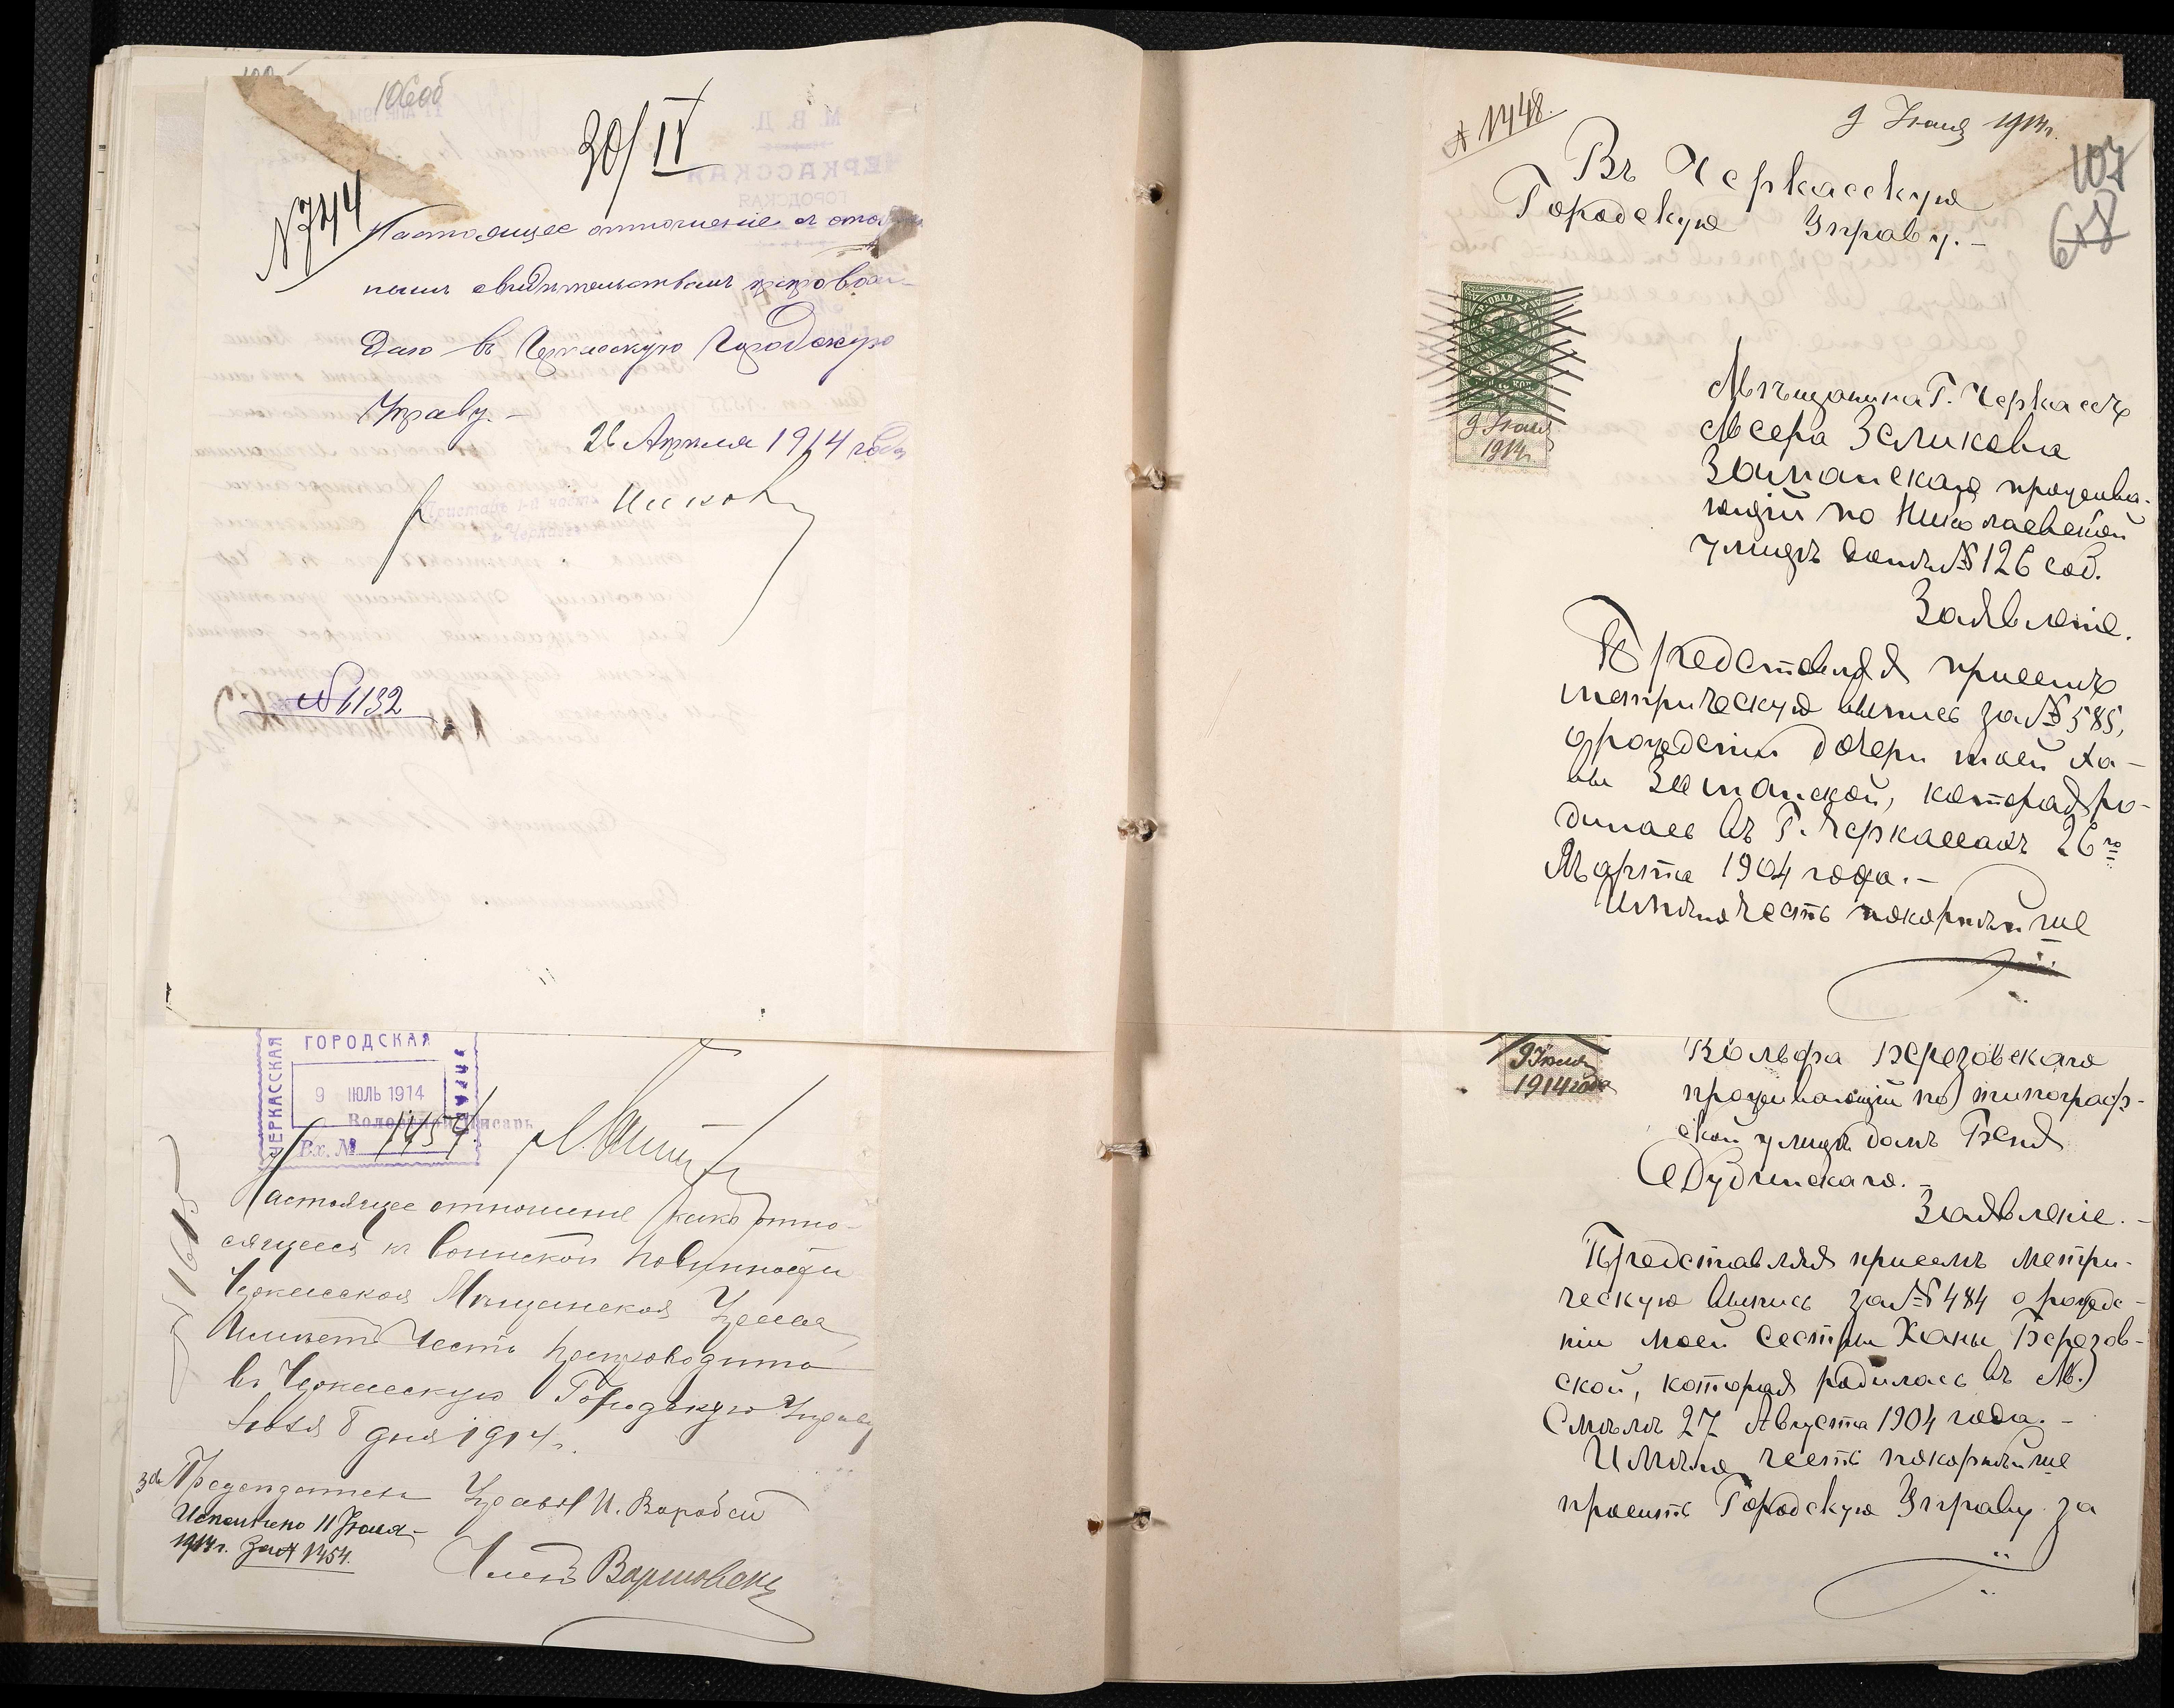 106об
30/IV
№744
Настоящее отношеніе съ отобран
нымъ свидѣтельствомъ препровож-
даю въ Черкасскую Городскую
Управу.-
26 Апрѣля 1914 года
Приставъ 1-й части
г. Черкассъ
№ 1132
ЧЕРКАССКАЯ
ГОРОДСКАЯ
УПРАВА
9 ІЮЛЬ 1914
Волостной Писарь
Вх. № 1454
Настоящее отношеніе, какъ отно-
сящееся къ воинской повинности
Черкасская Мѣщанская Управа
Имѣетъ Честь препроводить
въ Черкасскую Городскую Управу
Іюля 8 дня 1914 г.
за Предсѣдателя Управы И. Воробей
Исполнено 11 Іюля
1914 г. за № 1454.
Членъ Варшовск
№ 1448.
9 Іюля 1914 г.
107
618
Въ Черкасскую
Городскую Управу.-
9 Іюля
1914 г.
Мѣщанина Г. Черкассъ
Мсера Зеликова
Заманскаго прожива-
ющій по Николаевской
улицѣ домъ № 126 соб.
Заявленіе.
Представляя присемъ
метрическую выпись за № 585,
о рожденіи дочери моей Ха-
вы Заманской, которая ро-
дилась въ Г. Черкассахъ 26го
Марта 1904 года.-
Имѣю честь покорнѣйше
9 Іюля
1914 года
Вольфа Березовскаго
проживающій по типограф-
ской улицѣ домъ Беня
Сбудчинскаго.-
Заявленіе.-
Представляя присемъ метри-
ческую выпись за № 484 о рожде-
ніи моей сестры Ханы Березов-
ской, которая родилась въ М.
Смѣлѣ 27 Августа 1904 года.-
Имѣю честь покорнѣйше
просить Городскую Управу за